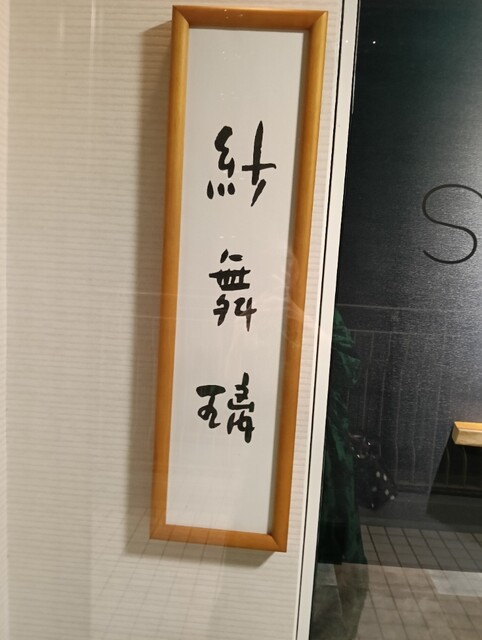 紗舞璃
S